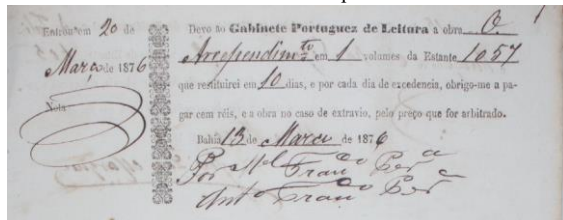 Entrou em 20 de
Março de 1876
Nota
Devo ao Gabinete Portuguez de Leitura a obra O.
Arrependimto em 1 volumes da Estante 1057
que restituirei em 10 dias, e por cada dia de excedencia, obrigo-me a pa-
gar cem réis, e a obra no caso de extravio, pelo preço que for arbitrado.
Bahia 13 de Março de 1876
Por Mel Franco Perª
Anto Franco Perª